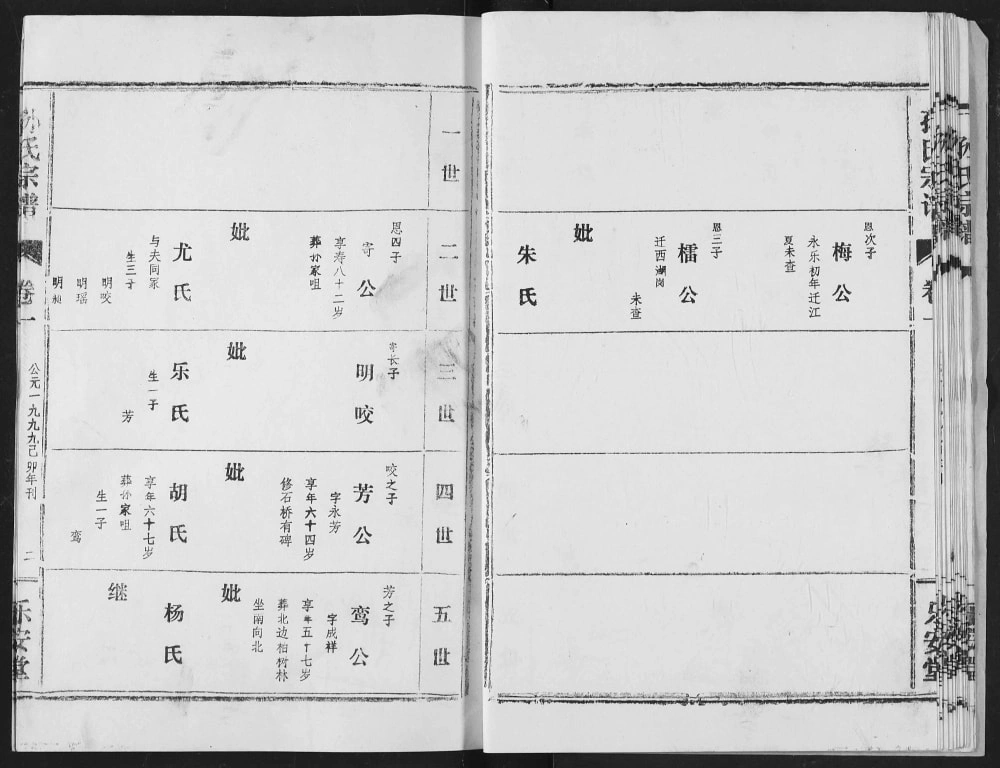 孙氏宗谱
卷
乐安堂
恩次子
梅公
永乐初年迁江
夏未查
恩三子
檑公
迁西湖岗
未查
妣
朱氏
一世
二世
三世
四世
五世
恩四子
寄公
享寿八十二岁
葬孙家咀
妣
尤氏
与夫同冢
生三子
明咬
明瑶
明
寄长子
明咬
妣
乐氏
生一子
芳
咬之子
芳公
字永芳
享年六十四岁
修石桥有碑
妣
胡氏
享年六十七岁
葬孙家咀
生一子
鸾
芳之子
鸾公
字成祥
享年五十七岁
葬北边柏树林
坐南向北
妣
杨氏
继
孙氏宗谱
卷一
公元一九九九己卯年刊
二
乐安堂